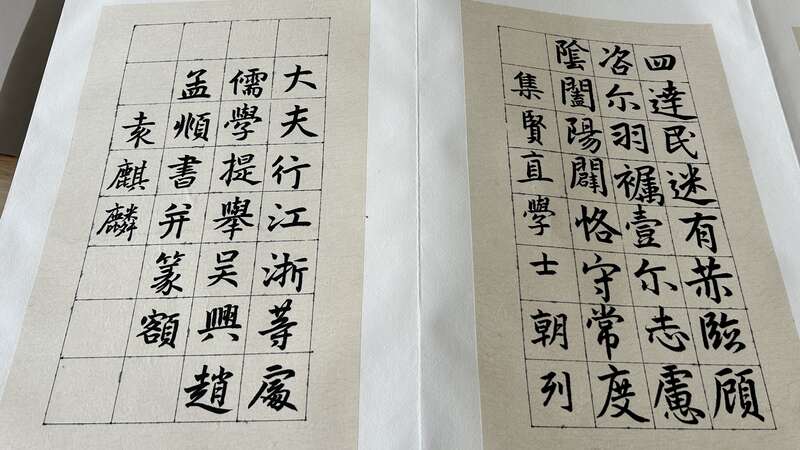 四達民迷有赫臨顧
咨尔羽襧壹尔志慮
陰闔陽闢恪守常度
集賢直學士朝列
大夫行江浙等處
儒學提舉吳興趙
孟頫書并篆額
袁麒麟